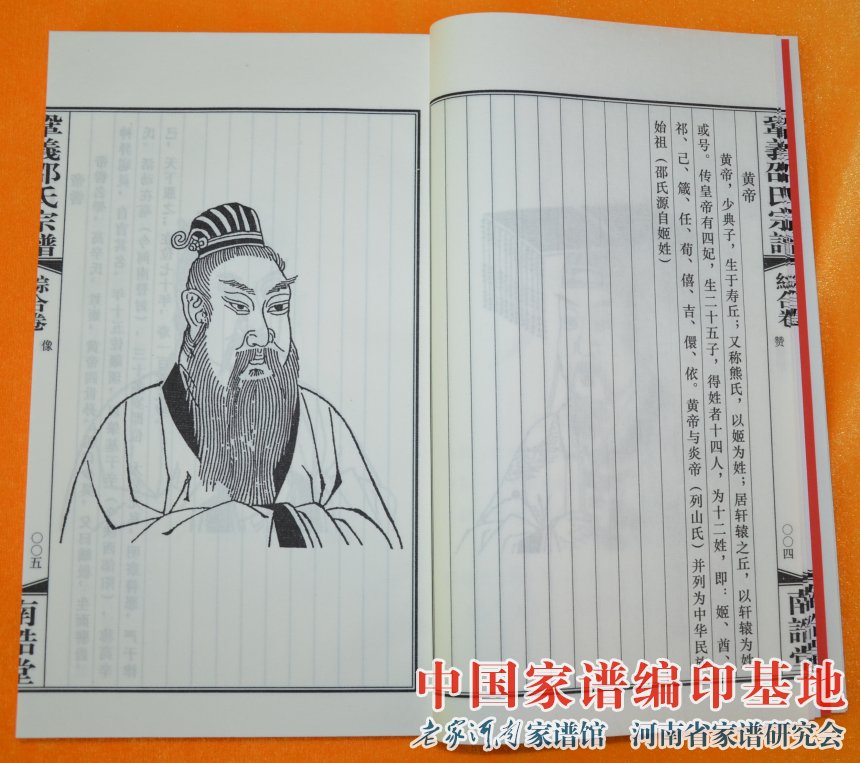 巩義邵氏宗譜
綜合卷
赞
〇〇四
南誥堂
黄帝
黄帝，少典子，生于寿丘；又称熊氏，以姬为姓；居轩辕之丘，以轩辕为姓
或号。传皇帝有四妃，生二十五子，得姓者十四人，为十二姓，即：姬、酉、
祁、己、箴、任、荀、僖、吉、儇、依。黄帝与炎帝（列山氏）并列为中华民族
始祖（邵氏源自姬姓）
義邵氏宗譜
綜合卷
像
〇〇五
南誥堂
中国家谱编印基地
老家河南家谱馆 河南省家谱研究会